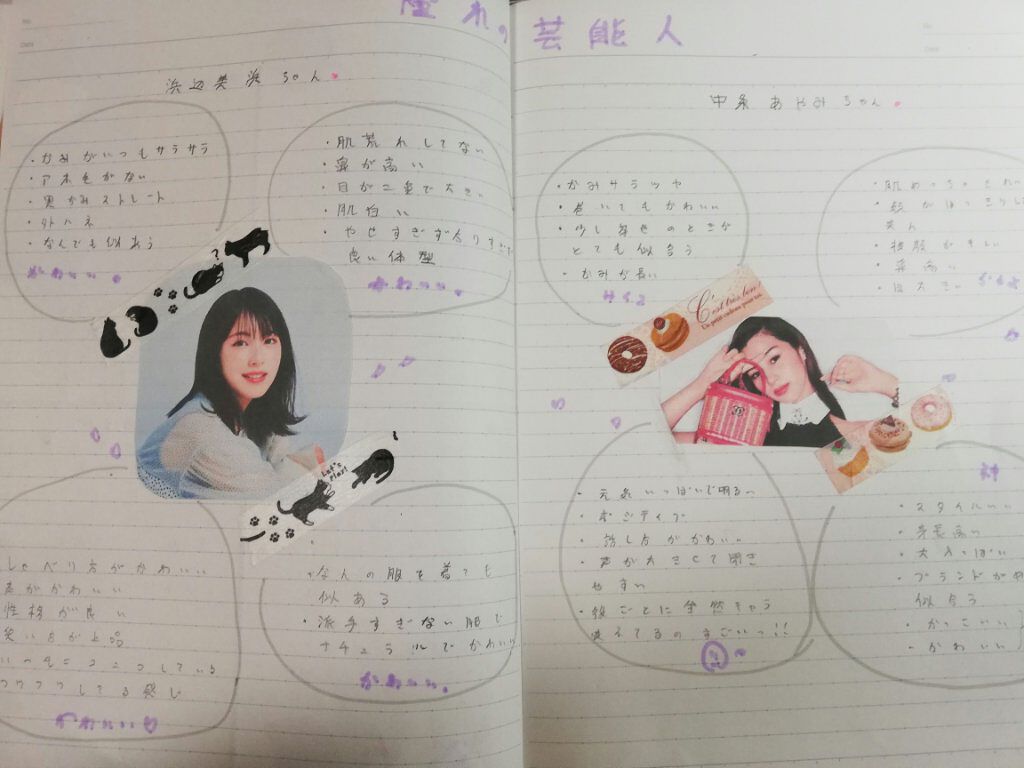 憧れの芸能人
浜辺美波ちゃん
・かみがいつもサラサラ
・アホ毛がない
・黒かみストレート
・外ハネ
・なんでも似あう
かわいい。
・肌荒れしてない
・鼻が高い
・目が二重で大きい
・肌白い
・やせすぎず太りすぎず
良い体型
かわいい。
?
Let's Play!
しゃべり方がかわいい
声がかわいい
性格が良い
笑い方が上品
いつもニコニコしている
フワフワしてる感じ
かわいい
・なんの服を着ても
似ある
・派手すぎない服で
ナチュラルでかわいい
かわいい。
中条あやみちゃん
・かみサラツヤ
・巻いてもかわいい
・少し茶色のときが
とても似合う
・かみが長い
サイコ
・肌めっちゃきれい
美人
・鼻高い
・目大きい
C'est très bon!
Un petit cadeau pour toi.
・元気いっぱいで明るい
・ポジティブ
・話し方がかわいい
・声が大きくて聞き
やすい
・役ごとに全然ちがう
変えてるのすごいっ!!
神
・スタイルいい
・身長高い
・大人っぽい
・ブランドが
似合う
・かっこいい
・かわいい